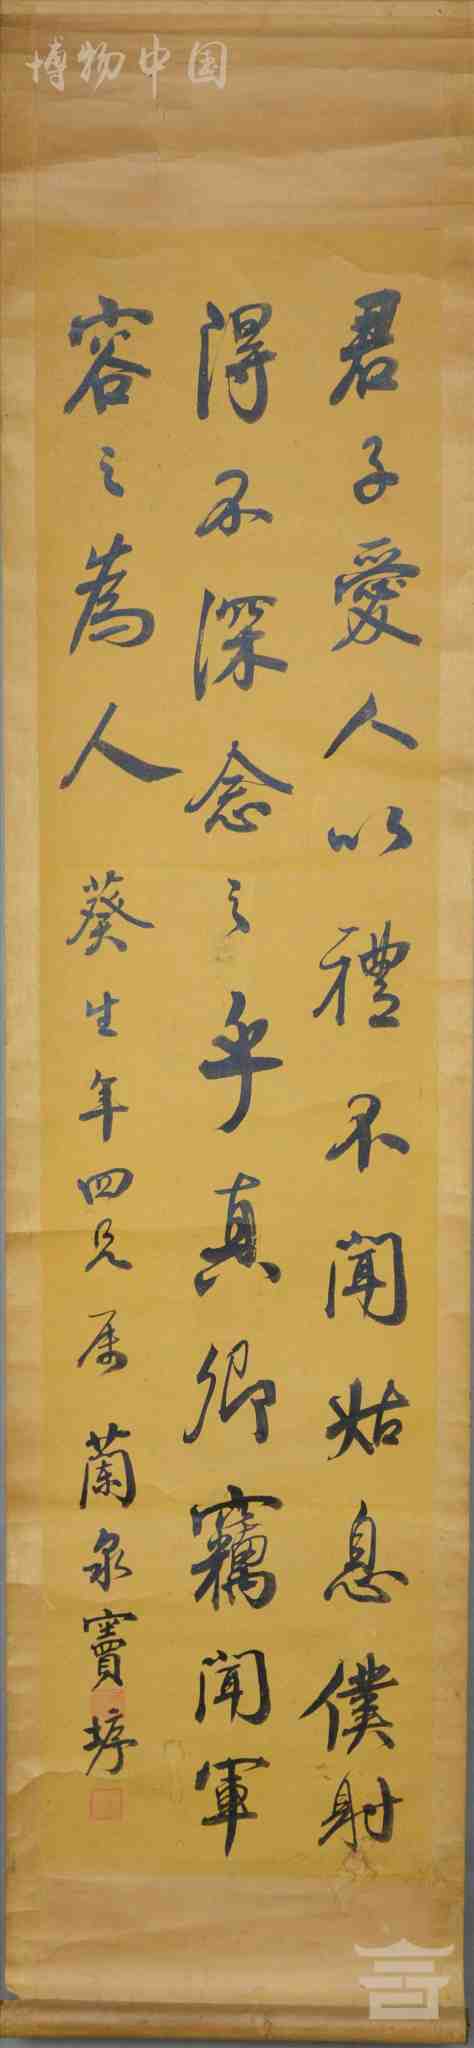 博物中国
君子愛人以禮不聞姑息僕射
得不深念之乎真卿竊聞軍
容之為人 葵生年四兄屬 蘭泉竇垿